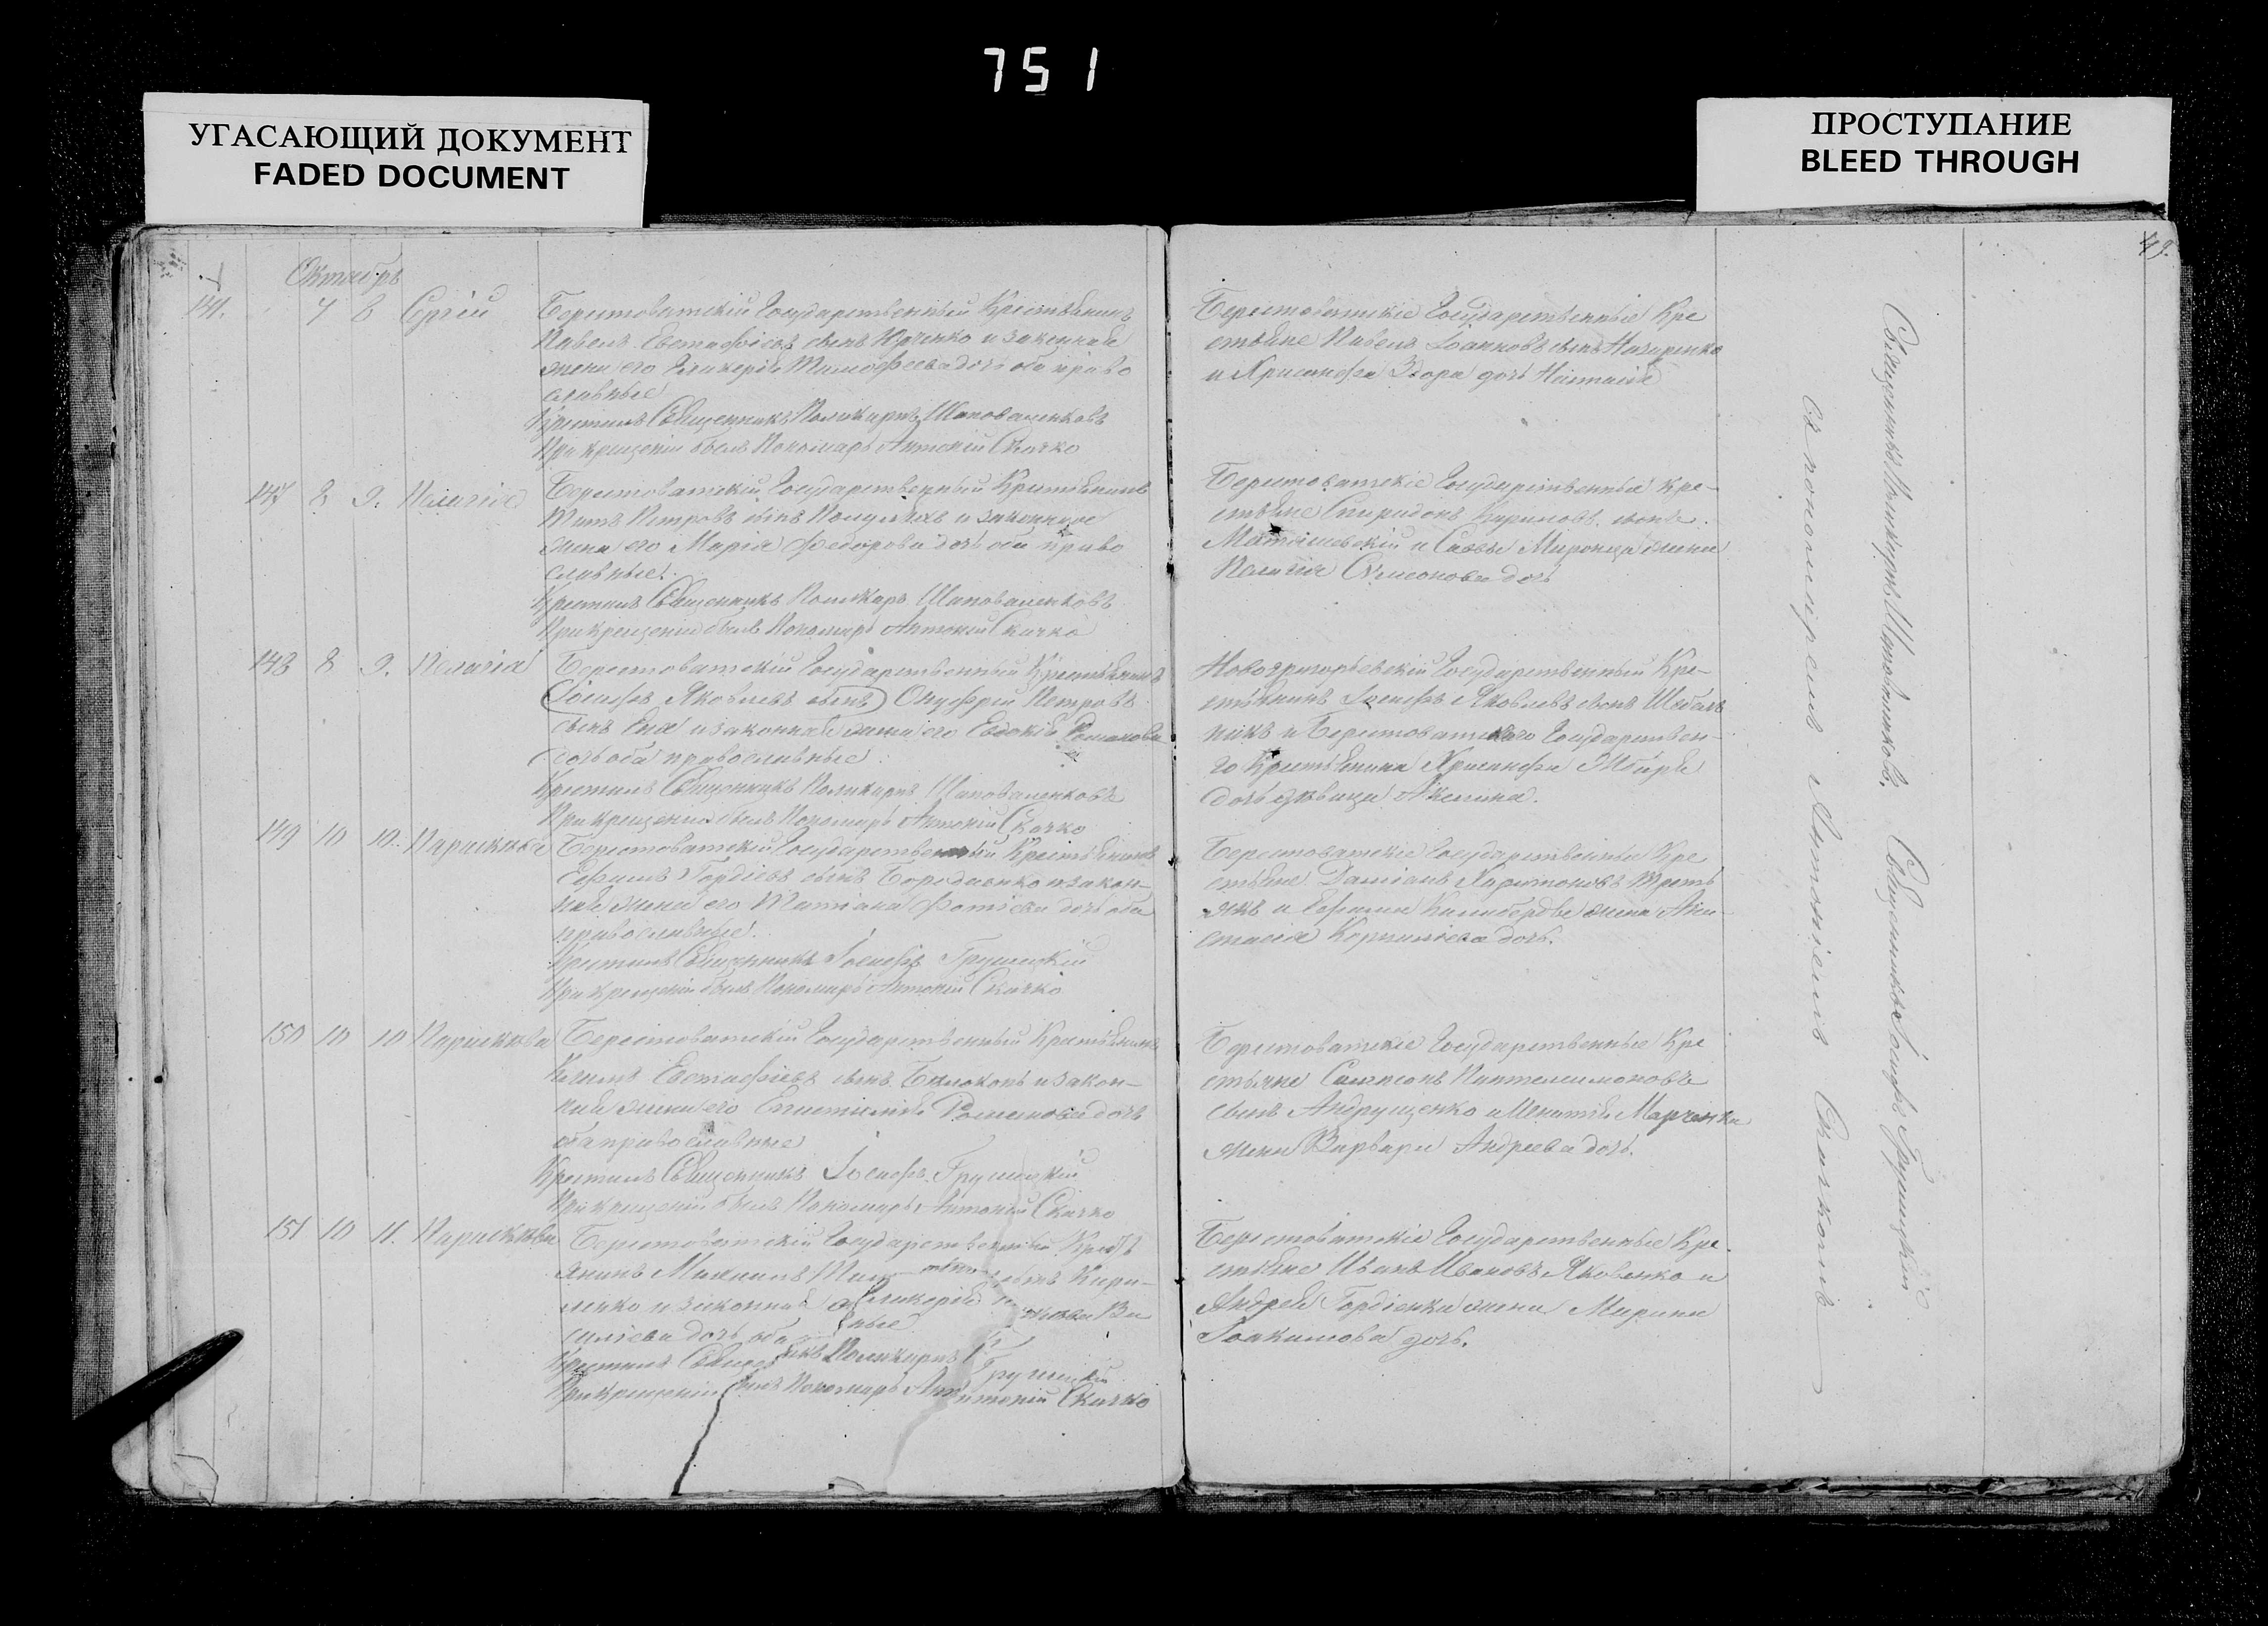 751
УГАСАЮЩИЙ ДОКУМЕНТ
FADED DOCUMENT
ПРОСТУПАНИЕ
BLEED THROUGH
Октябрь
141. 7 8 Сергій
Берестоватскій Государственный Крестьянинъ
Павелъ Евстафіевъ сынъ и законная
жена его Гликерія Тимофеева дочь оба право
славные
Крестилъ Священникъ Поликарпъ Шаповаленковъ
При крещеніи былъ Пономарь Антоній Скачко
Берестоватскіе Государственные Кре
стьяне Павелъ Іоанновъ сынъ Назаренко
и Хрисанфа дочь
147 8 9. Пелагія
Берестоватскій Государственный Крестьянинъ
Титъ Петровъ сынъ и законная
жена его Марія Федорова дочь оба право
славные.
Крестилъ Священникъ Поликарпъ Шаповаленковъ
При крещеніи былъ Пономарь Антоній Скачко
Берестоватскіе Государственные Кре-
стьяне Спиридонъ Кириловъ сынъ
и Саввы жена
Пелагія Симеонова дочь
148 8 9. Пелагія
Берестоватскій Государственный Крестьянинъ
Іосифъ Яковлевъ сынъ Онуфрій Петровъ
сынъ и законная жена его Евдокія Романова
дочь оба православные
Крестилъ Священникъ Поликарпъ Шаповаленковъ
При крещеніи былъ Пономарь Антоній Скачко
Новогригорьевскій Государственный Кре-
стьянинъ Іосифъ Яковлевъ сынъ
и Берестоватскаго Государствен-
го Крестьянина Хрисанфа
дочь дѣвица Акилина.
149 10 10. Параскева
Берестоватскій Государственный Крестьянинъ
Ефимъ Гордіевъ сынъ Бородаенко и закон-
ная жена его Татіана Фотіева дочь оба
православные.
Крестилъ Священникъ Іосифъ Грушецкій
При крещеніи былъ Пономарь Антоній Скачко
Берестоватскіе Государственные Кре
стьяне Даміанъ Харитоновъ Треть
якъ и Ефима жена Ана-
стасія Корниліева дочь.
150 10 10 Параскева
Берестоватскій Государственный Крестьянинъ
Климъ Евстафіевъ сынъ Белоконь и закон-
ная жена его Епистимія Романова дочь
оба православные
Крестилъ Священникъ Іосифъ Грушецкій
При крещеніи былъ Пономарь Антоній Скачко
Берестоватскіе Государственные Кре
стьяне Сампсонъ Пантелеимоновъ
сынъ Андрущенко и Игнатія Марченка
жена Варвара Андреева дочь.
151 10 11. Параскева
Берестоватскій Государственный Кресть
янинъ Михаилъ сынъ Кири-
ленко и законная Гликерія Ва
силіева дочь оба
Крестилъ Поликарпъ
Грушецкій
При крещеніи былъ Пономарь Антоній Скачко
Берестоватскіе Государственные Кре
стьяне Иванъ Ивановъ Яковенко и
Андрея Гордіенка жена Марина
Іоакимова дочь.
Священникъ Поликарпъ Шаповаленковъ. Священникъ Іосифъ Грушецкій
съ пономаремъ Антоніемъ Скачкомъ